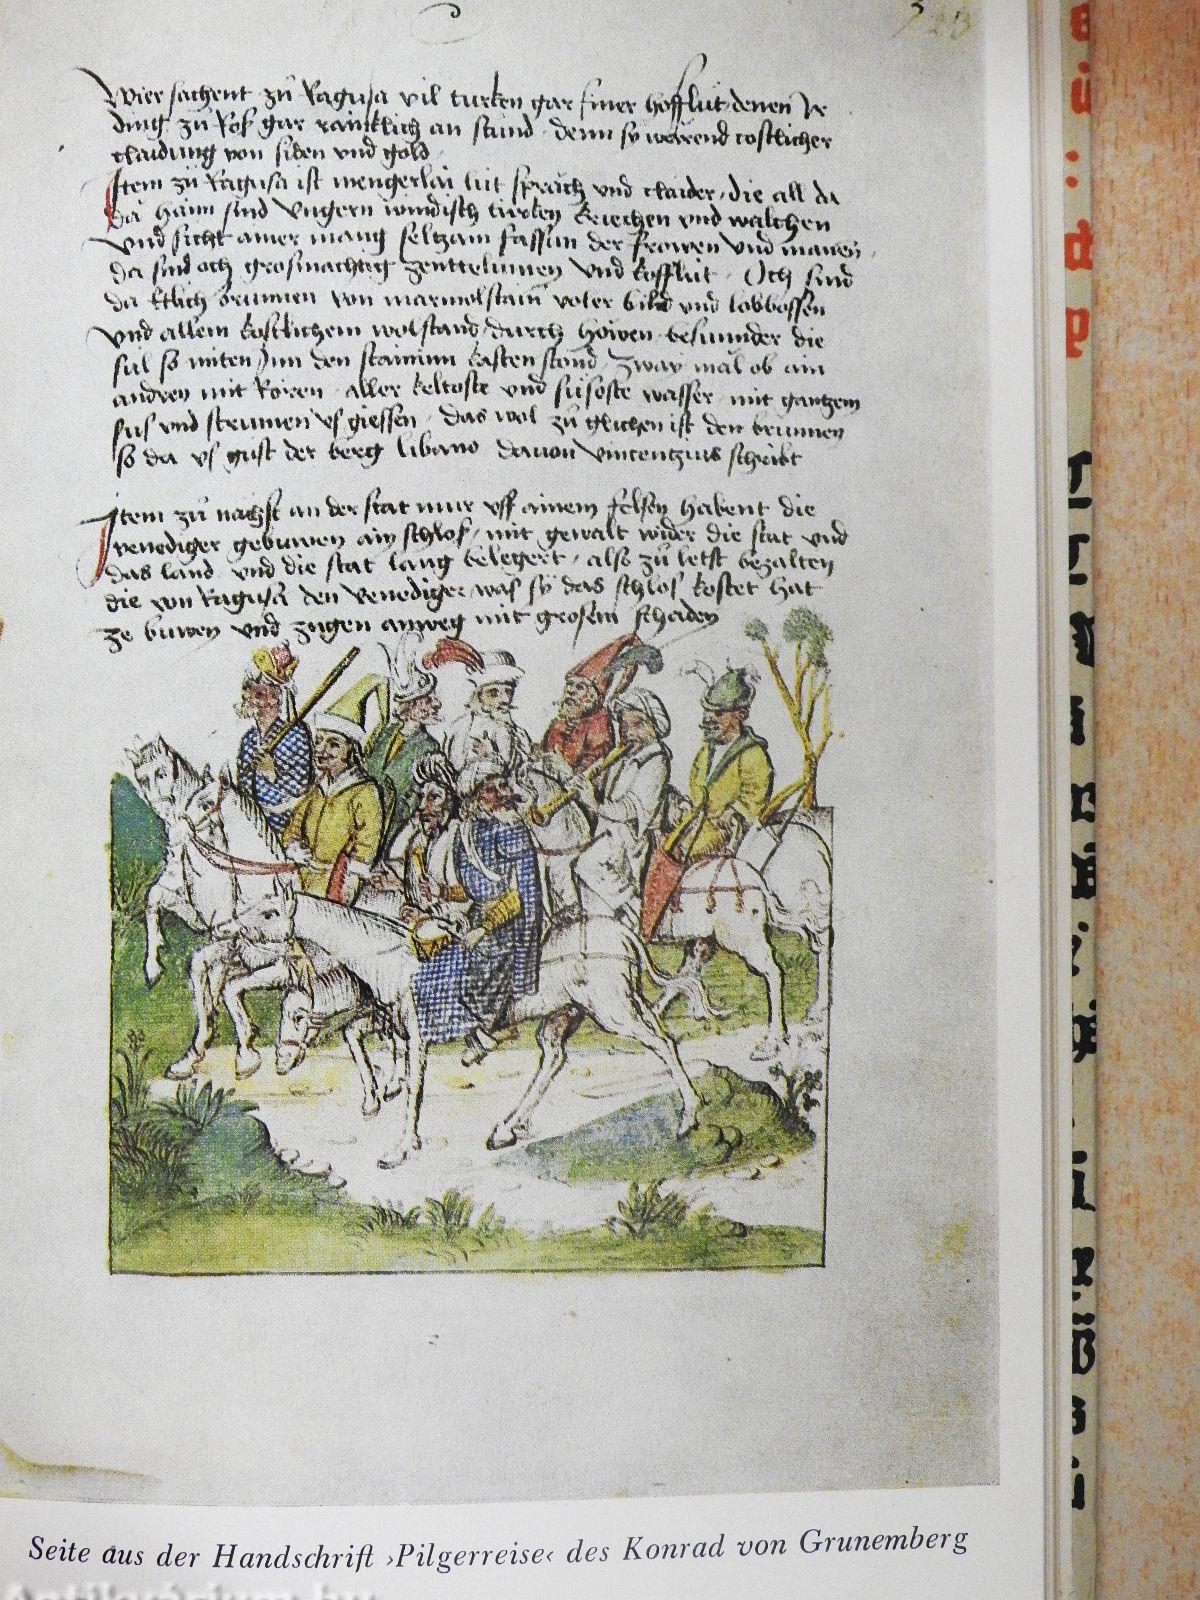 Wier sachent zů Ragusa vil turken gar finer hofflüt denen Jr
ding zů Roß gar raincklich an stůnd denn sy warend costlicher
claidung von siden vnd gold
Item zů Ragusa ist mengerlai lüt sprach vnd claider die all da
da hain sind Vngern windisch türken kriechen vnd walchen
vnd sicht ainer mang seltzam fassun der frowen vnd manen
da sind och grosmachtig zenttelumen vnd kofflüt Och sind
da ettlich brunnen von marmolstain voler bild vnd lobbossen
vnd allem kostlichem wolstand durch howen besunnder die
sül so miten Jnn den stainin kasten stand zway mal ob ain
andren mit Roren aller keltoste vnd süsoste wasser mit gantzem
fus vnd strumen vs giessen das wol zů glichen ist den brunnen
so da vs gust der berg libano dauon vincentzius schribt
Item zů nachst an der stat mur vff ainem felsen habent die
venediger gebuwen ain schlos mit gewalt wider die stat vnd
das land vnd die stat lang belegert also zů letst bezalten
die von Ragusa den venediger was sy das schlos kostet hat
ze buwen vnd zugen anweg mit grosem schaden
Seite aus der Handschrift ›Pilgerreise‹ des Konrad von Grunemberg